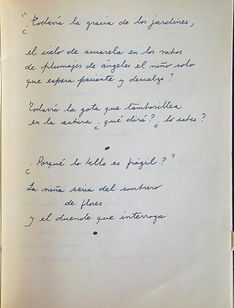 "¿Todavía la gracia de los jardines,
el cielo de acuarela en los ratos
de plumajes de ángeles el niño solo
que espera paciente y descalzo?
Todavía la gota que tamborillea
en la ¿qué dirá? ¿lo sabes?
¿Porqué lo bello es frágil?"
La niña seria del sombrero
de flores
y el duende que interroga